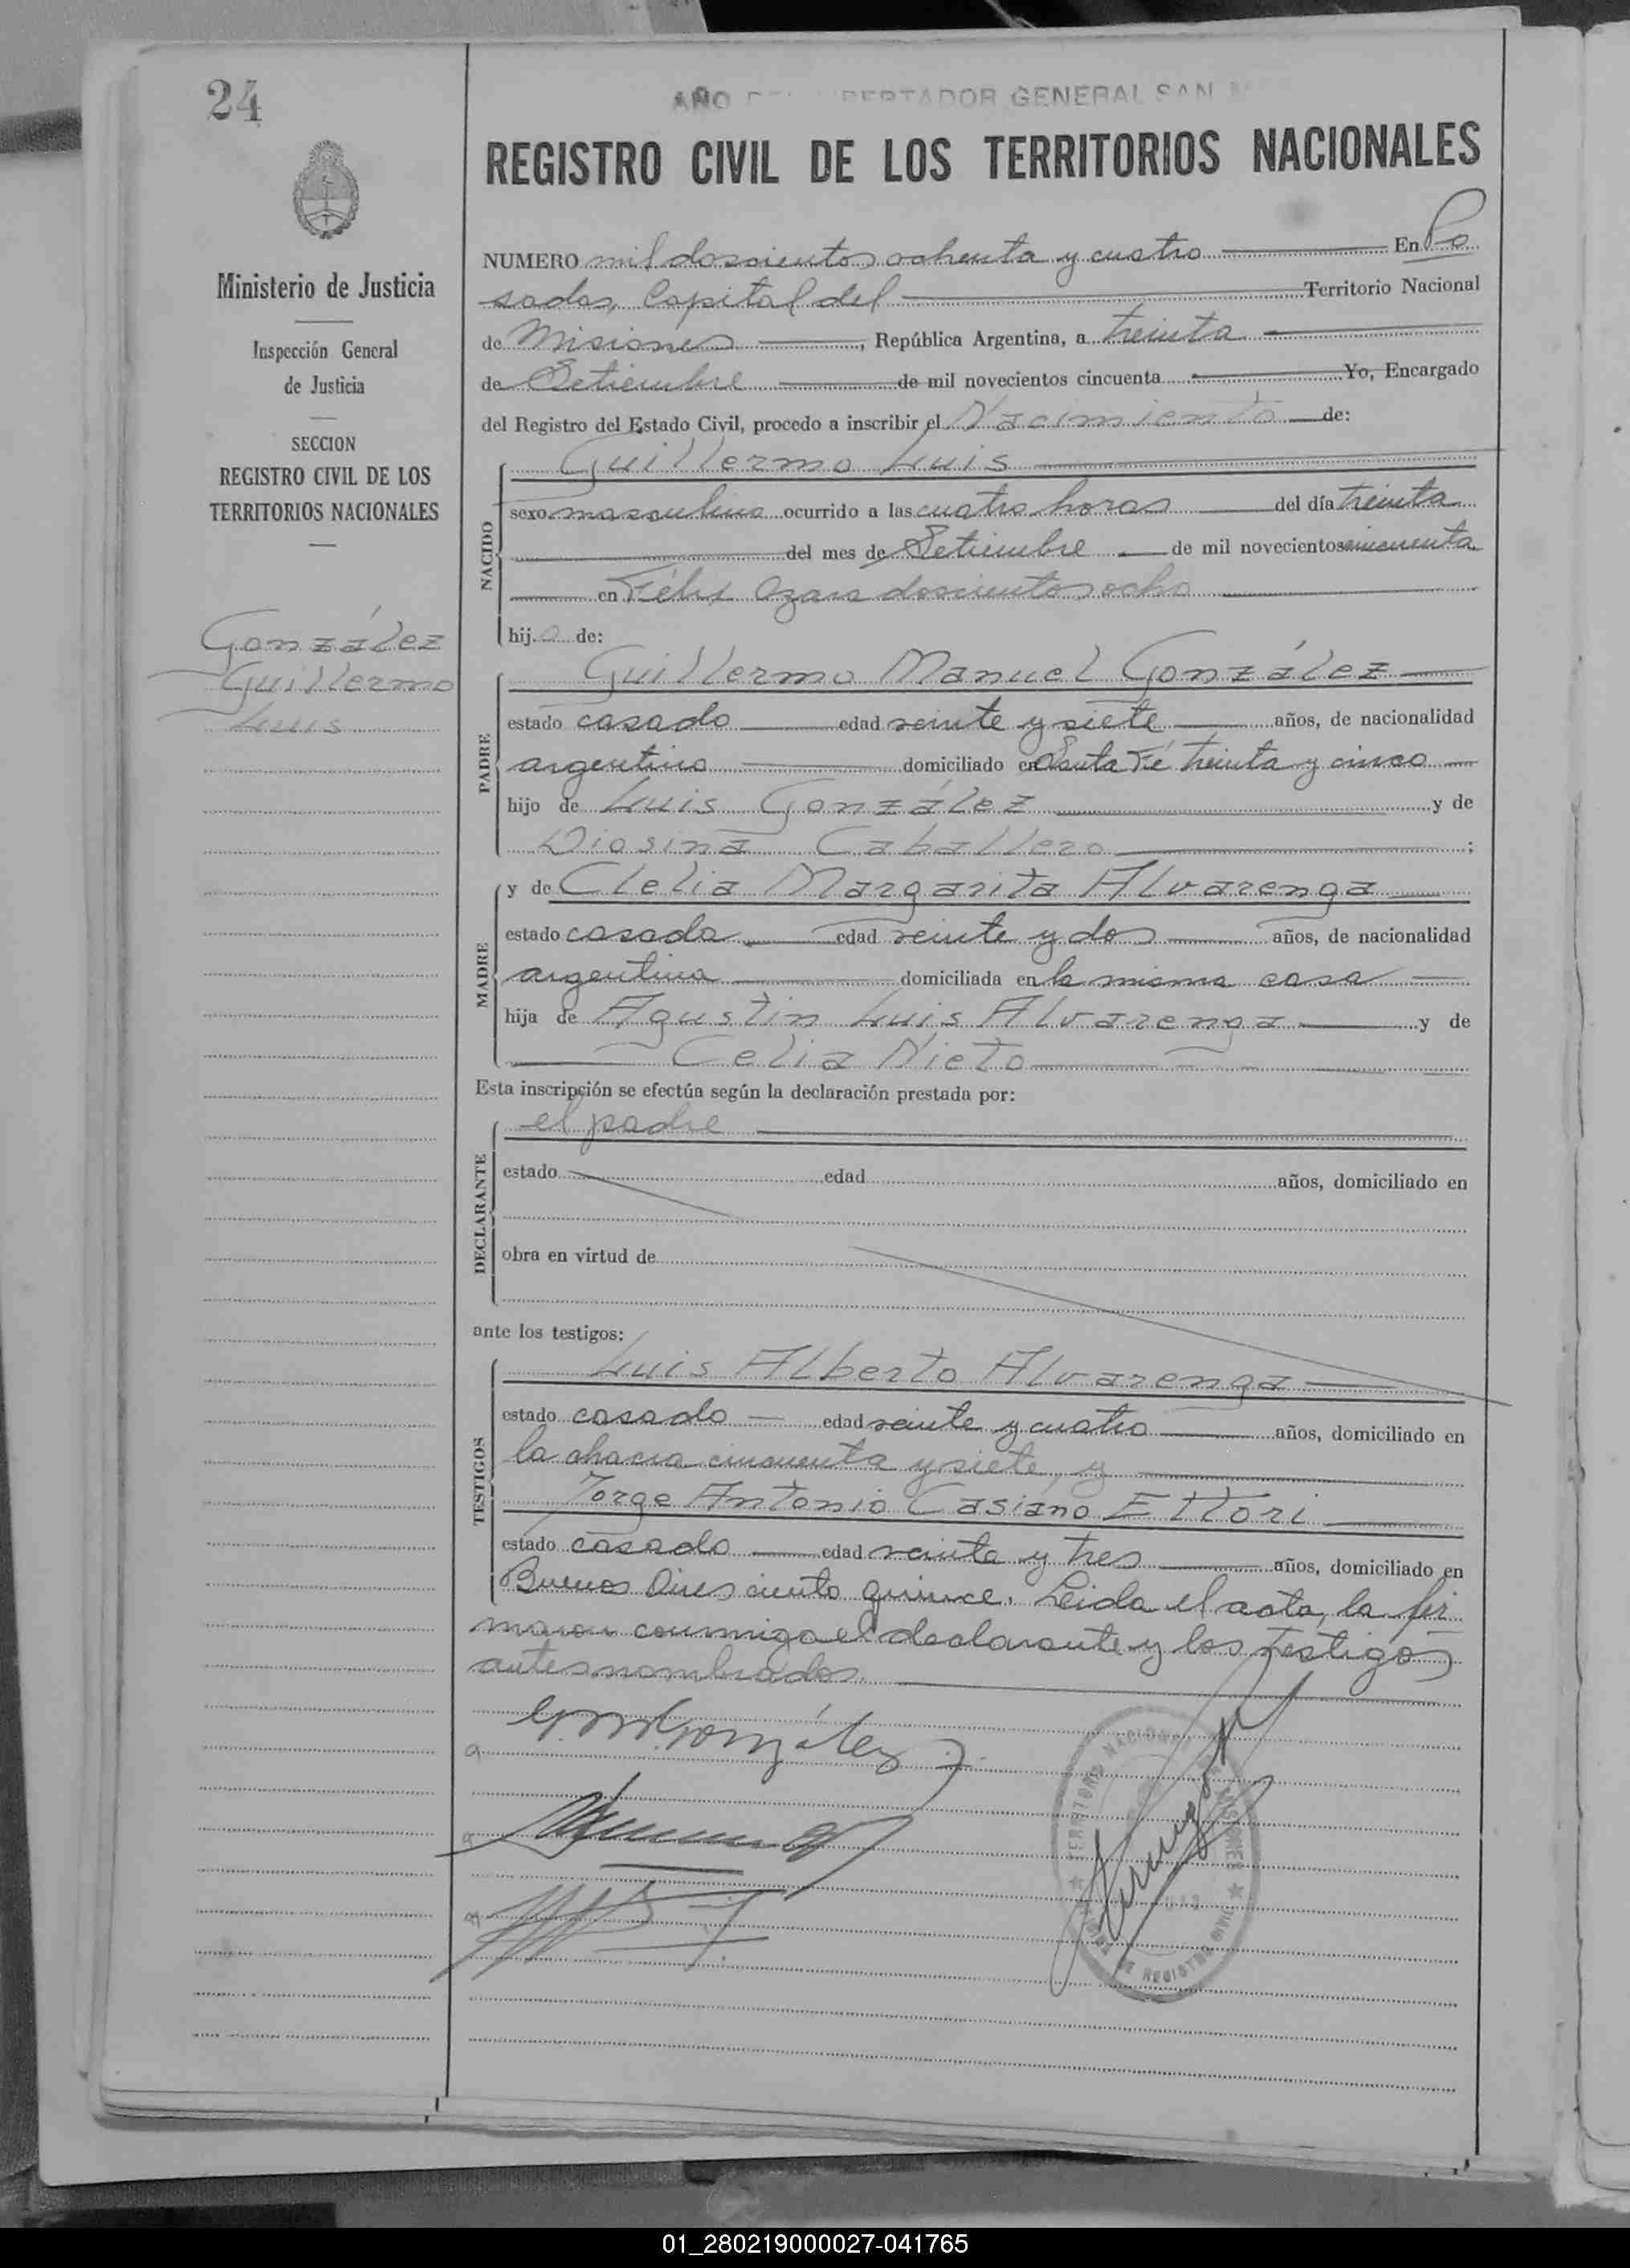 24
AÑO LIBERTADOR GENERAL SAN
REGISTRO CIVIL DE LOS TERRITORIOS NACIONALES
Ministerio de Justicia
Inspección General
de Justicia
SECCION
REGISTRO CIVIL DE LOS
TERRITORIOS NACIONALES
González
Guillermo
Luis
NUMERO mil doscientos ochenta y cuatro En Po
sadas, Capital del Territorio Nacional
de Misiones, República Argentina, a treinta
de Setiembre de mil novecientos cincuenta Yo, Encargado
del Registro del Estado Civil, procedo a inscribir el Nacimiento de:
NACIDO
Guillermo Luis
sexo masculino ocurrido a las cuatro horas del día treinta
del mes de Setiembre de mil novecientos cincuenta
en Félix Azara doscientos ocho
hijo de:
PADRE
Guillermo Manuel González
estado casado edad veinte y siete años, de nacionalidad
argentino domiciliado en Santa Fé treinta y cinco
hijo de Luis González y de
Diosina Caballero;
MADRE
y de Clelia Margarita Alvarenga
estado casada edad veinte y dos años, de nacionalidad
argentina domiciliada en la misma casa
hija de Agustin Luis Alvarenga y de
Celia Nieto
Esta inscripción se efectúa según la declaración prestada por:
DECLARANTE
el padre
estado edad años, domiciliado en
obra en virtud de
ante los testigos:
TESTIGOS
Luis Alberto Alvarenga
estado casado edad veinte y cuatro años, domiciliado en
la chacra cincuenta y siete, y
Jorge Antonio Casiano Ettori
estado casado edad veinte y tres años, domiciliado en
Buenos Aires ciento quince. Leida el acta, la fir
maron conmigo el declarante y los testigos
antes nombrados.
G. M. González
TERRITORIO NACIONAL DE MISIONES
REGISTRO CIVIL
01_280219000027-041765